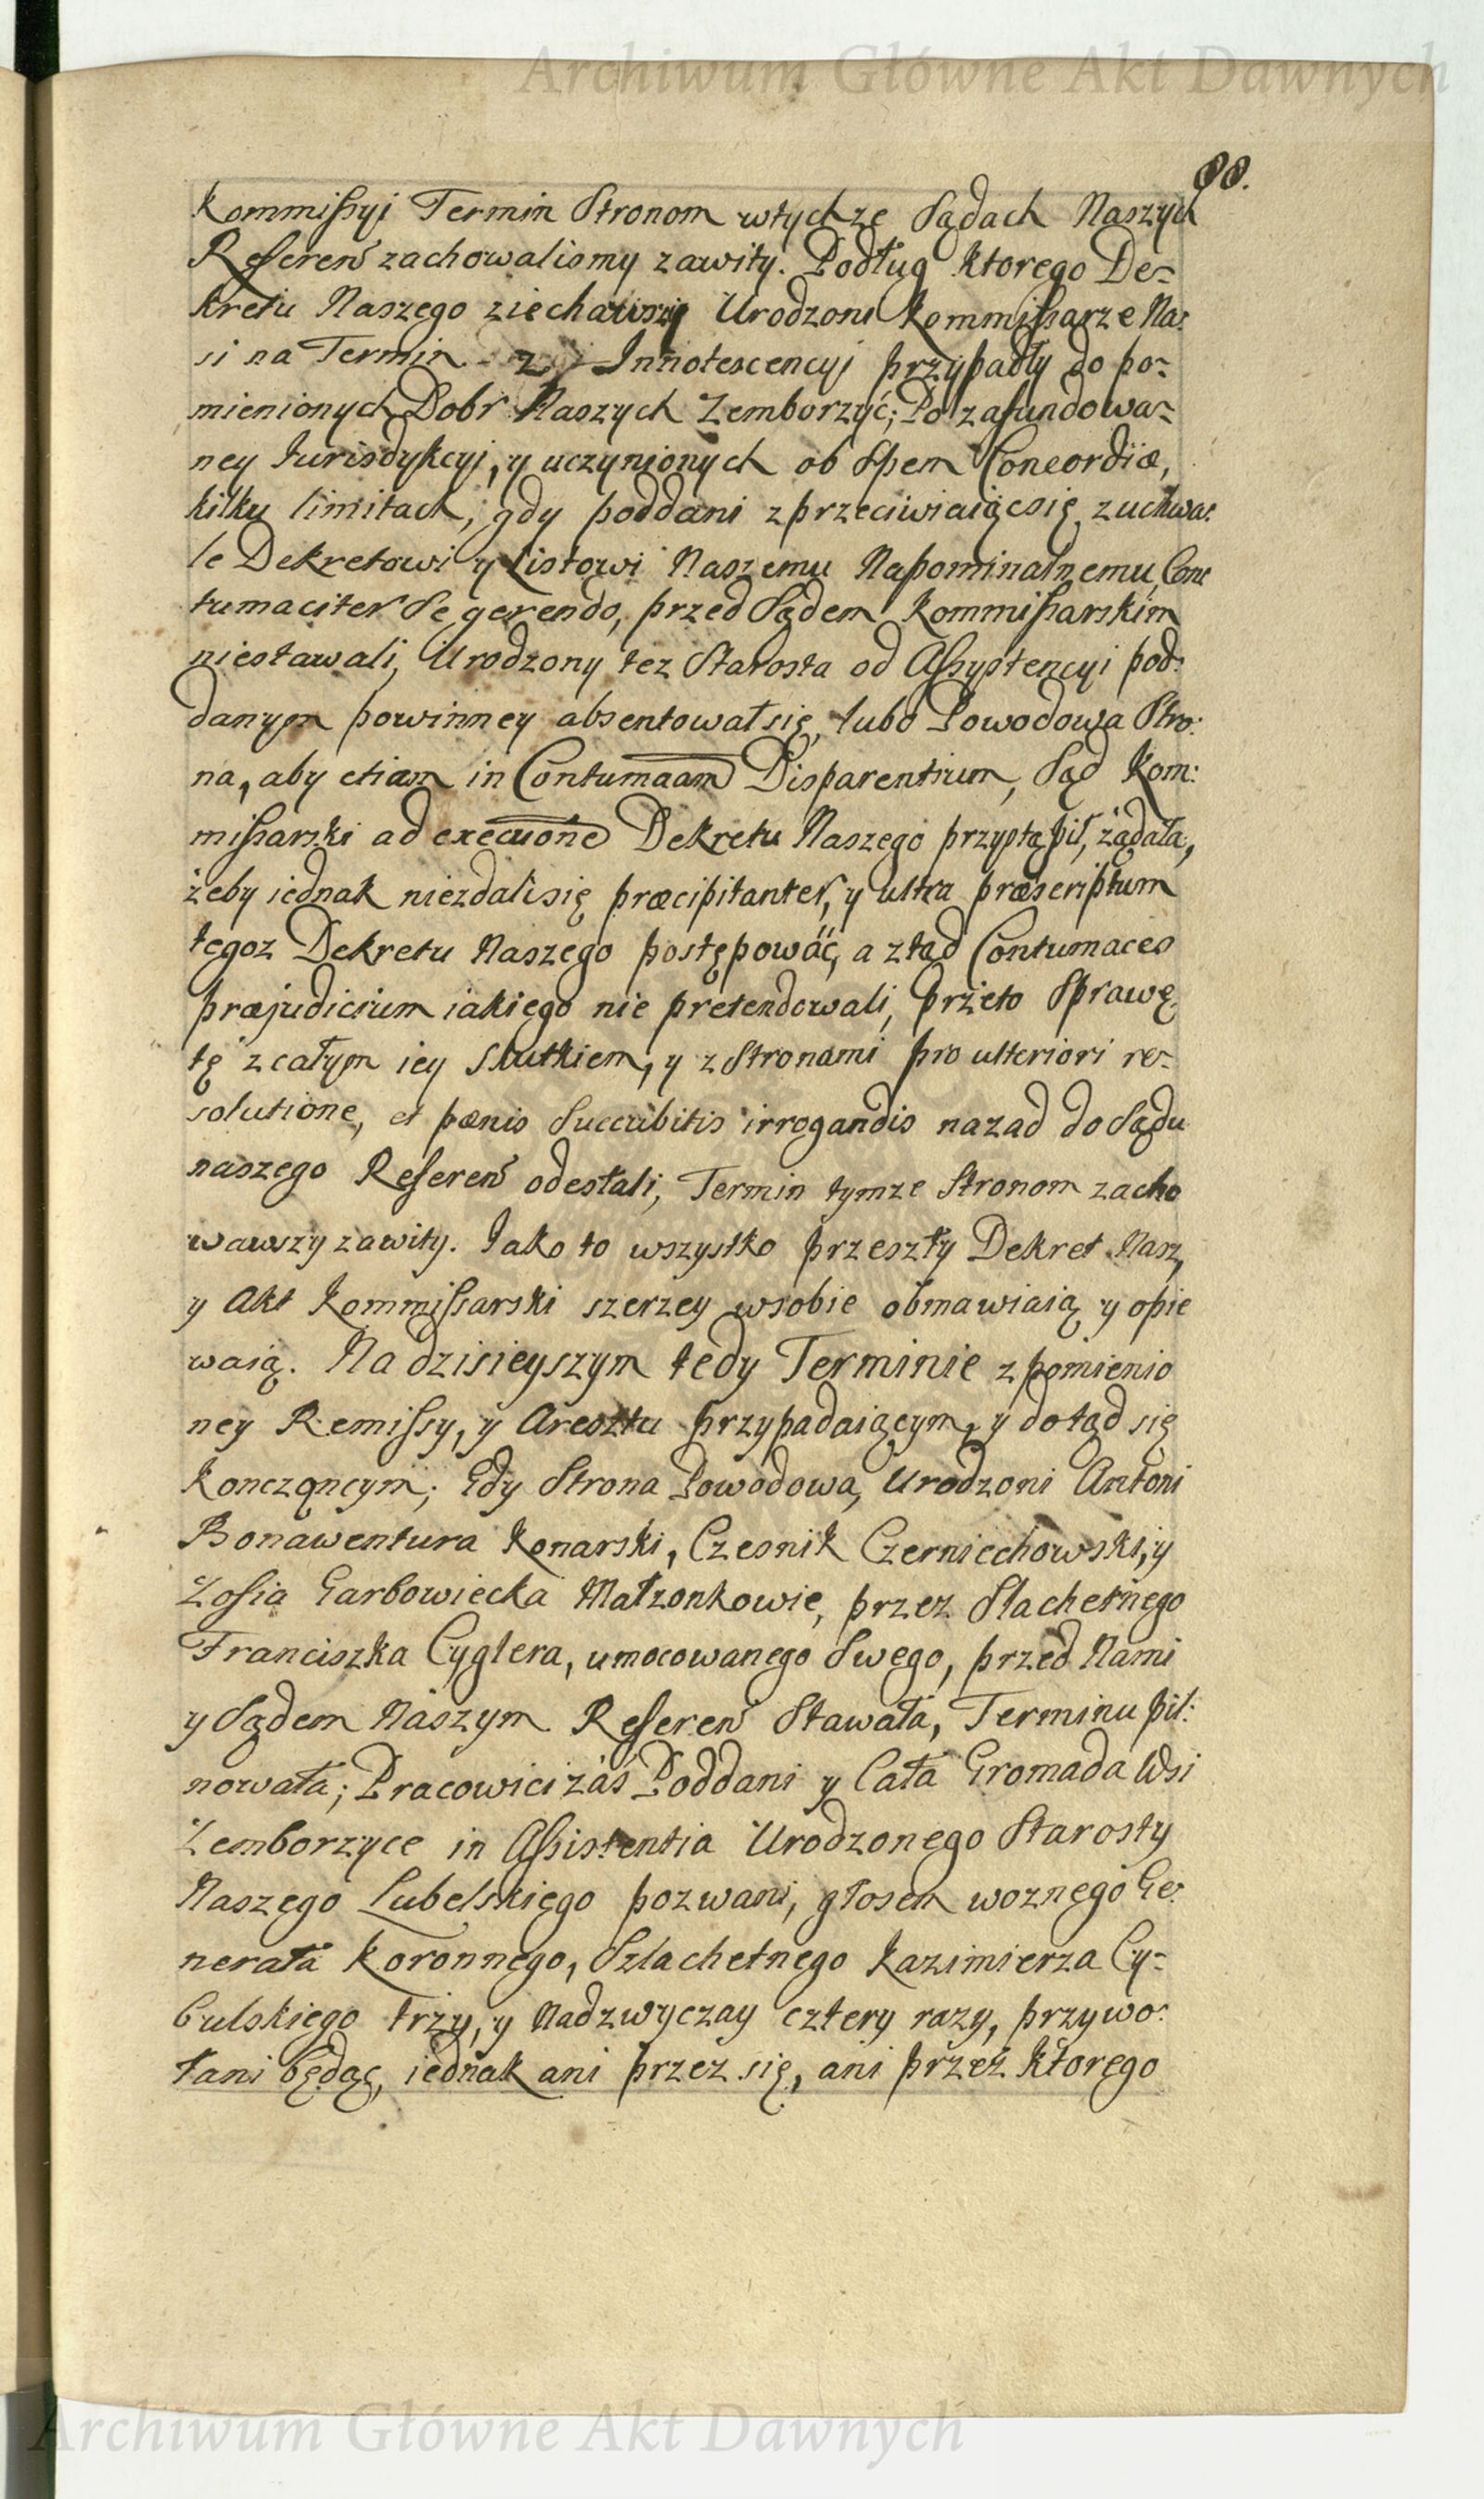 Archiwum Główne Akt Dawnych
88.
Kommissyi Termin Stronom wtychze Sądach Naszych
Referen zachowalismy zawity. Podług ktorego De-
kretu Naszego ziechawszy Urodzoni Kommissarze Na-
si na Termin z Innotescencyi przypadły do po-
mienionych Dobr Naszych Zemborzyc; Po zafundowa-
ney Iurisdykcyi, y uczynionych ob Spem Concordiæ,
kilku limitach, gdy poddani zprzeciwiaiącsię zuchwa-
le Dekretowi y Listowi Naszemu Napominalnemu, Con-
tumaciter Se gerendo, przed Sądem Kommissarskim
niestawali, Urodzony tez Starosta od Assystencyi pod-
danym powinney absentował się, lubo Powodowa Stro-
na, aby etiam in Contumaam Disparentium, Sąd Kom-
missarski ad execuone Dekretu Naszego przystąpił, żądała,
żeby iednak niezdali się præcipitanter, y ultra præscriptum
tegoz Dekretu Naszego postępować, a ztąd Contumaces
præjudicium iakiego nie pretendowali, przeto Sprawę
tę zcałym iey Skutkiem, y z Stronami pro ulteriori re-
solutione, et pænis Succubitis irrogandis nazad do Sądu
naszego Referen odesłali, Termin tymze Stronom zacho
wawszy zawity. Iako to wszystko przeszły Dekret Nasz,
y Akt Kommissarski szerzey wsobie obmawiaią y opie
waią. Na dzisieyszym tedy Terminie zpomienio
ney Remissy, y Aresztu przypadaiącym, y dotąd się
konczącym; Gdy Strona Powodowa, Urodzoni Antoni
Bonawentura Konarski, Czesnik Czerniechowski, y
Zofia Garbowiecka Małzonkowie, przez Slachetnego
Franciszka Cyglera, umocowanego Swego, przed Nami
y Sądem Naszym Referen Stawała, Terminu pil-
nowała; Pracowici zaś Poddani y Cała Gromada Wsi
Zemborzyce in Assistentia Urodzonego Starosty
Naszego Lubelskięgo pozwani, głosem woznego Ge-
nerała Koronnego, Szlachetnego Kazimierza Cy-
bulskiego trzy, y Nadzwyczay cztery razy, przywo-
łani będąc, iednak ani przez się, ani przez ktorego
Archiwum Główne Akt Dawnych